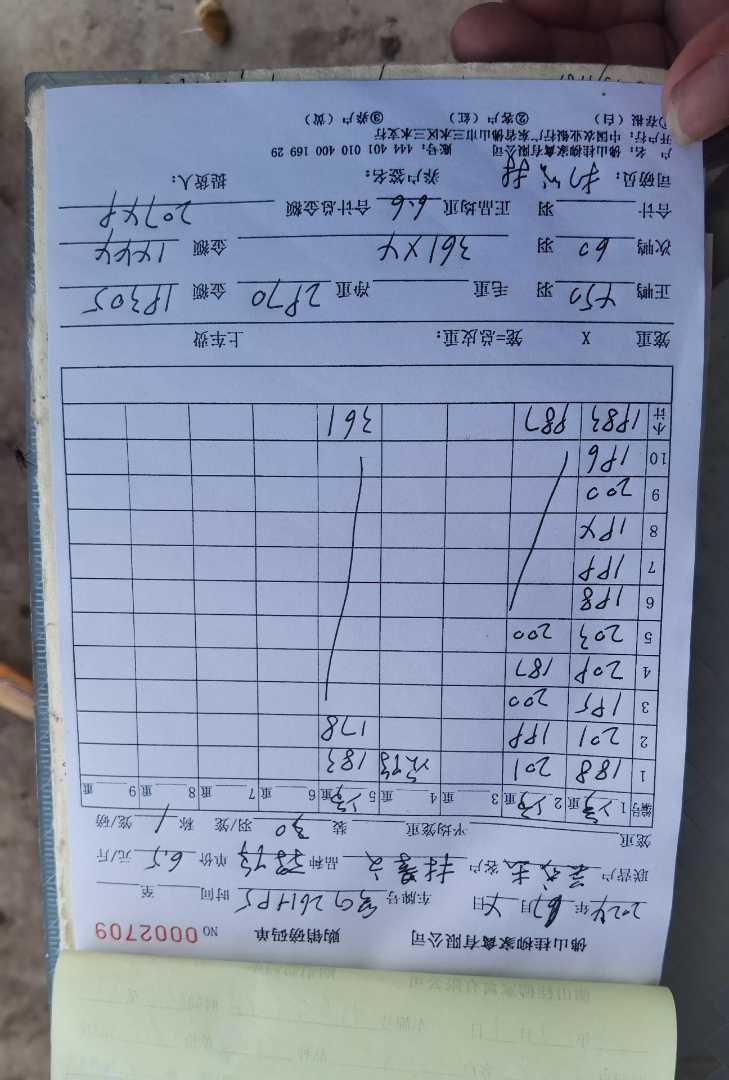 佛山桂柳家禽有限公司 购销磅码单 NO 0002709
2024年 月 4日 车牌号 粤Q26H95 时间 至
联营户 客户 品种 单价 6.5 元/斤
笼重 平均笼重 装 30 羽/笼 称 1 笼/磅
编号 1 重 2 重 3 重 4 重 5 重 6 重 7 重 8 重 9 重
1 188 201 次鸭 183
2 201 199 178
3 195 200
4 209 187
5 203 200
6 198
7 199
8 194
9 200
10 196
小计 1983 987 361
笼重 X 笼=总皮重： 上车费
正鸭 450 羽 毛重 净重 2970 金额 19305
次鸭 60 羽 361×4 金额 1444
合计 羽 正品均重 6.6 合计总金额 20749
司磅员： 养户签名： 提货人：
户 名：佛山桂柳家禽有限公司 账号：444 401 010 400 169 29
开户行：中国农业银行广东省佛山市三水区三水支行
①存根（白） ②客户（红） ③养户（黄）